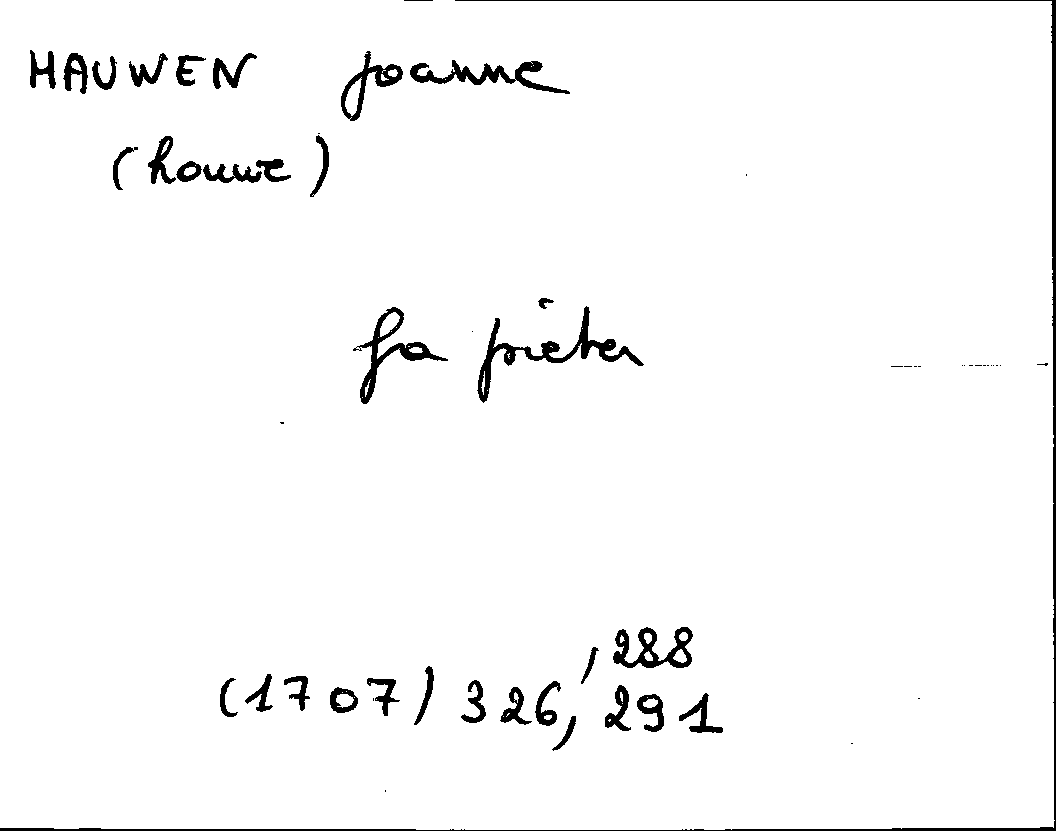 HAUWEN joanne
(houwe)
fa pieter
, 288
(1707) 326, 291